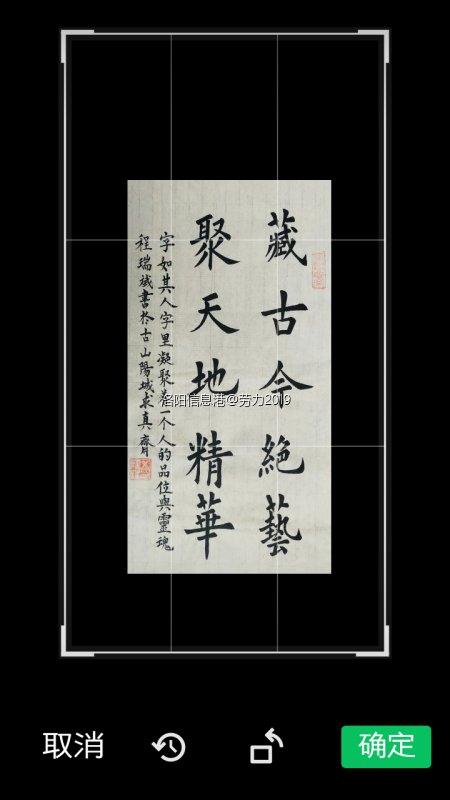 藏古今絕藝
聚天地精華
字如其人字里凝聚着一个人的品位與靈魂
程瑞斌書於古山陽城求真齋
洛阳信息港@劳力2019
取消
确定